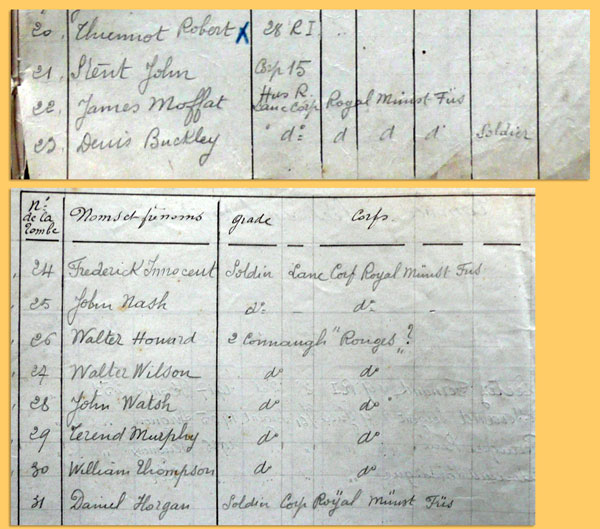 20. Thiennot Robert X 28 R I
21. Stént John Corp 15 Hus R.
22. James Moffat Lance Corp Royal Münst Füs
23. Denis Buckley do d d do Soldier
No. de la Tombe Noms et prénoms grade Corps
24 Frederick Innocent Soldier Lanc Corp Royal Münst Füs
25 John Nash do - do -
26 Walter Howard 2 Connaugh "Rouges"?
27 Walter Wilson do do
28 John Watsh do do
29 Terend Murphy do do
30 William Thompson do do
31 Daniel Horgan Soldier Corp Royal Münst Füs